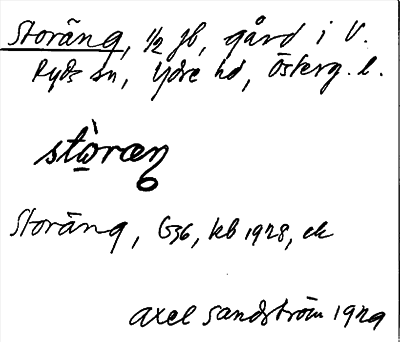 Storäng, 1/2 jb, gård i V.
Ryds sn, Ydre hd, Österg. l.
stòraŋ
Storäng, G36, kb 1928, ek
Axel Sandström 1929